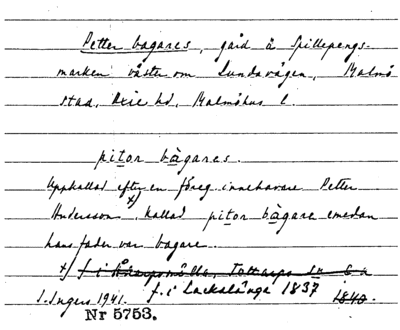 Petter bagares, gård å Spillepengs-
marken väster om Lundavägen, Malmö
stad, Oxie hd, Malmöhus l.
pitor bàgares.
Uppkallad efter en föreg. innehavare Petter
Andersson x), kallad pitor bàgare emedan
hans fader var bagare.
x) f. i Åkarpsmölla, Tottarps sn
f. i Lackalänge 1837 1840
I. Ingers 1941.
Nr 5753.